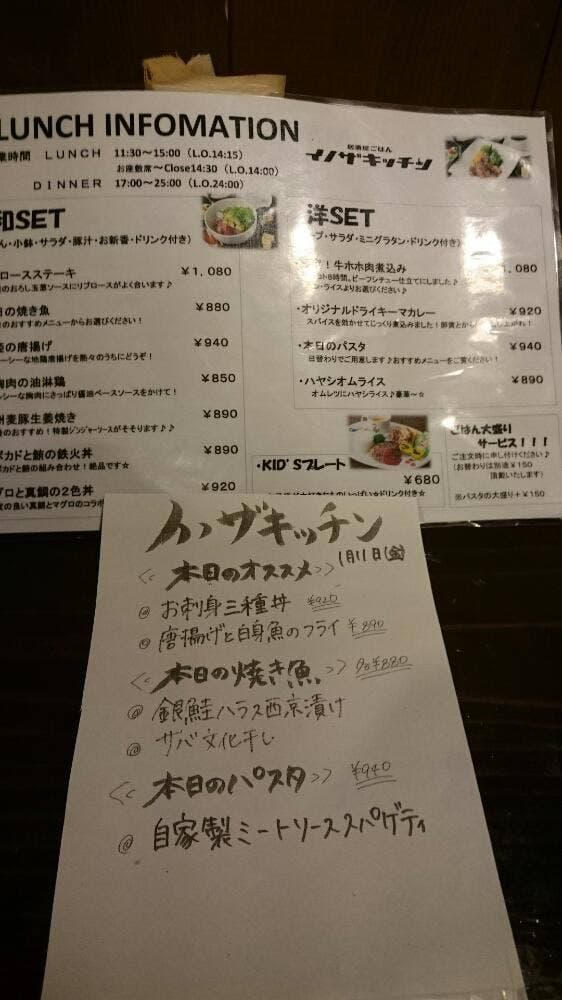 LUNCH INFOMATION
業時間 LUNCH 11:30～15:00（L.O.14:15）
お座敷席～Close14:30（L.O.14:00）
DINNER 17:00～25:00（L.O.24:00）
居酒屋ごはん
イノザキッチン
和SET
ん・小鉢・サラダ・豚汁・お新香・ドリンク付き）
ロースステーキ ￥1,080
のおろし玉葱ソースにリブロースがよく合います♪
日の焼き魚 ￥880
のおすすめメニューからお選びください！
の唐揚げ ￥940
ーシーな地鶏唐揚げを熱々のうちにどうぞ！
胸肉の油淋鶏 ￥850
シーな胸肉にさっぱり醤油ベースソースをかけて！
麦豚生姜焼き ￥890
のおすすめ！特製ジンジャーソースがそそります♪♪
ボカドと鮪の鉄火丼 ￥890
ボカドと鮪の組み合わせ！絶品です☆
グロと真鯛の2色丼 ￥920
の良い真鯛とマグロのコラボ
洋SET
プ・サラダ・ミニグラタン・ドリンク付き）
！牛ホホ肉煮込み 1,080
8時間。ビーフシチュー仕立てにしました♪
ン・ライスよりお選びください♪
・オリジナルドライキーマカレー ￥920
スパイスを効かせてじっくり煮込みました！
・本日のパスタ ￥940
日替わりでご用意します♪おすすめメニューをご覧ください！
・ハヤシオムライス ￥890
オムレツにハヤシライス♪豪華～☆
・KID'Sプレート
￥680
ドリンク付き☆
ごはん大盛り
サービス！！！
ご注文時に申し付けください♪
（お替わりは別途￥150
頂戴いたします）
※パスタの大盛り＋￥150
イノザキッチン
<<本日のオススメ>> 1月11日(金)
@ お刺身三種丼 ￥920
@ 唐揚げと白身魚のフライ ￥890
<<本日の焼き魚>> 各￥880
@ 銀鮭ハラス西京漬け
@ サバ文化干し
<<本日のパスタ>> ￥940
@ 自家製ミートソーススパゲティ